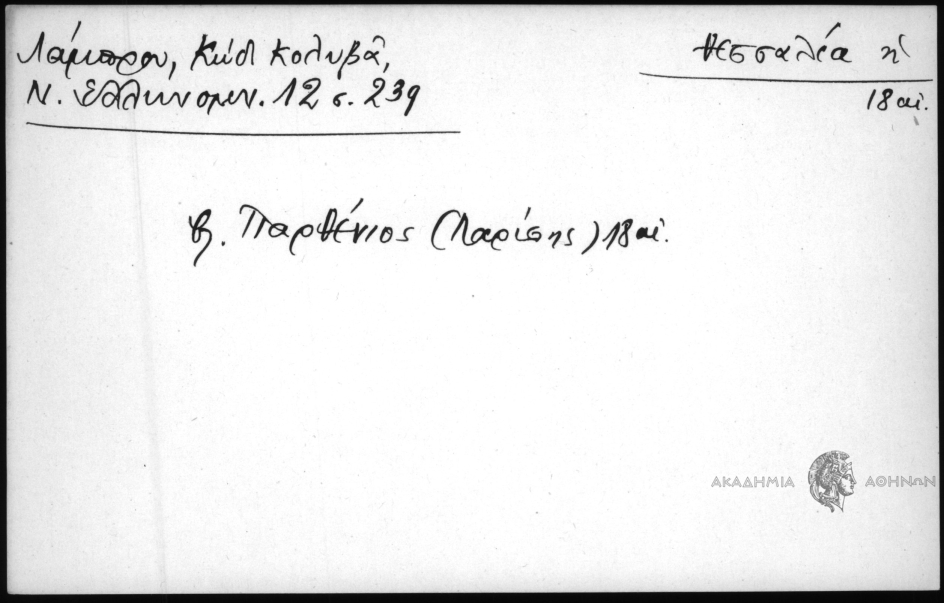 Λάμπρου, Κώδ Κολυβᾶ,
Θεσσαλία ἡ
Ν. Ἑλληνομν. 12 σ. 239
18 αἰ.
βλ. Παρθένιος (Λαρίσης) 18 αἰ.
ΑΚΑΔΗΜΙΑ ΑΘΗΝΩΝ